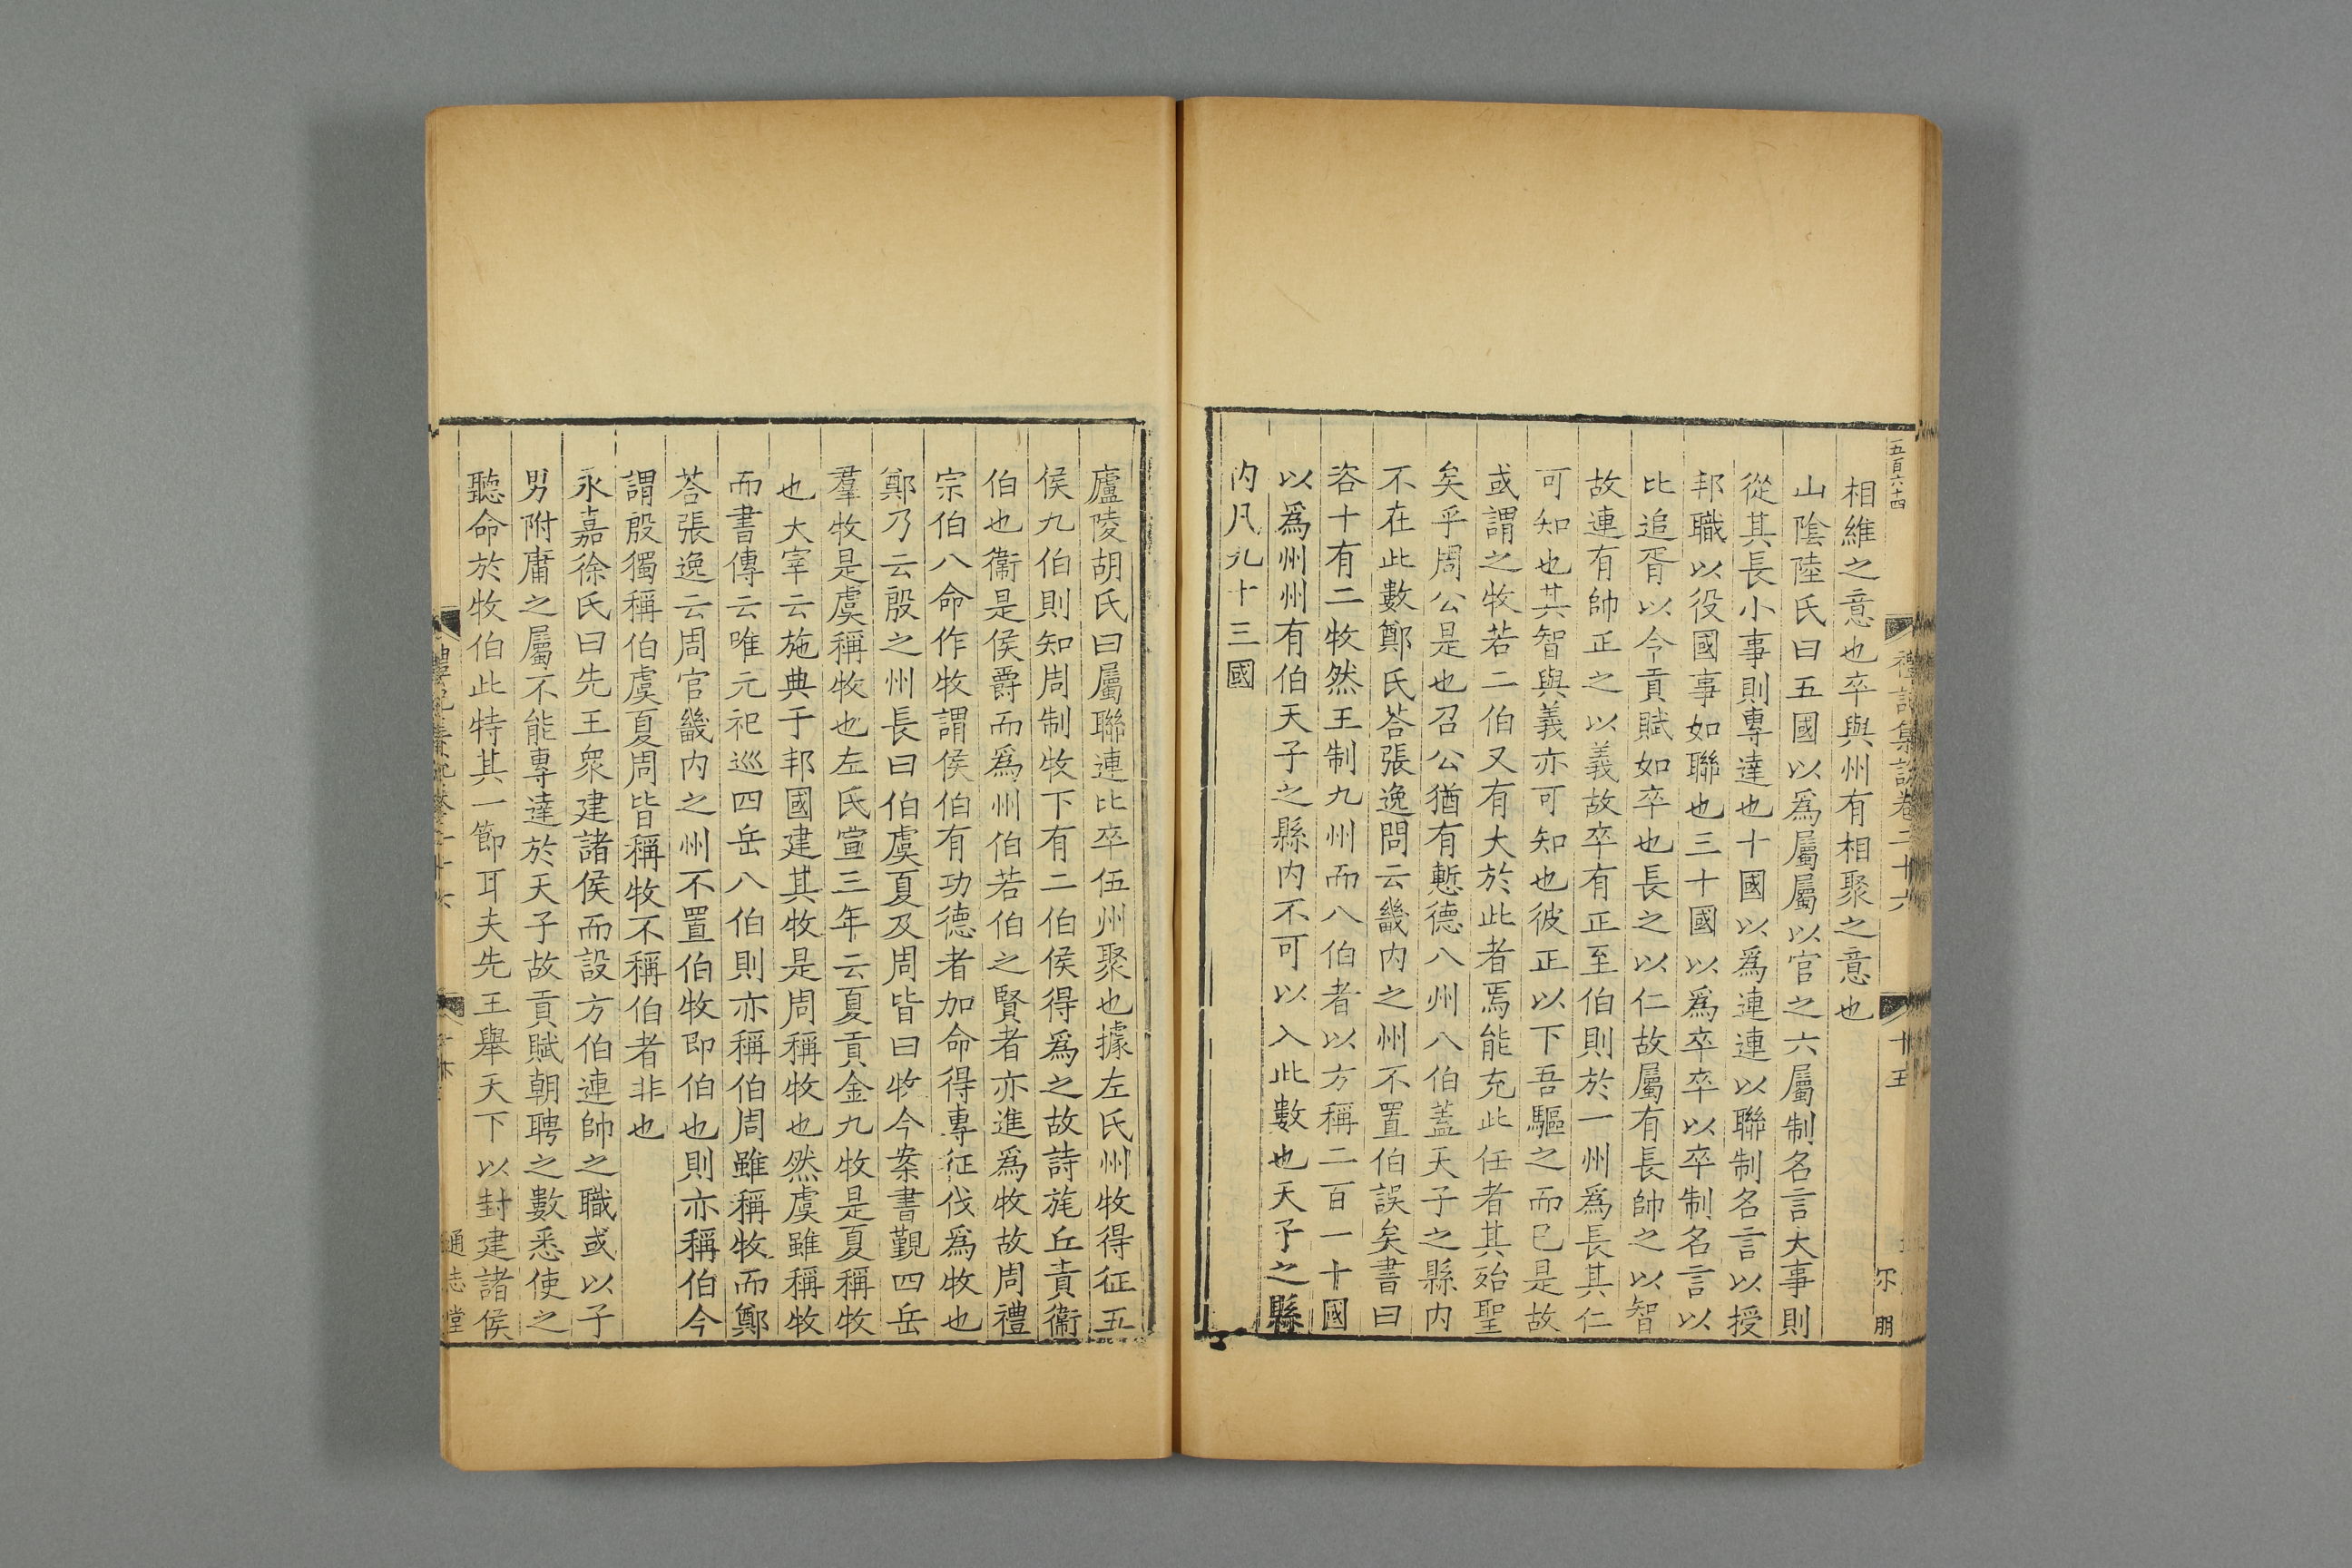 五百六十四
禮記集說卷二十六
十五
朋
相維之意也卒與州有相聚之意也
山陰陸氏曰五國以爲屬屬以官之六屬制名言大事則
從其長小事則專達也十國以爲連連以聯制名言以授
邦職以役國事如聯也三十國以爲卒卒以卒制名言以
比追胥以令貢賦如卒也長之以仁故屬有長帥之以智
故連有帥正之以義故卒有正至伯則於一州爲長其仁
可知也其智與義亦可知也彼正以下吾驅之而已是故
或謂之牧若二伯又有大於此者焉能充此任者其殆聖
矣乎周公是也召公猶有慙德八州八伯蓋天子之縣内
不在此數鄭氏荅張逸問云畿内之州不置伯誤矣書曰
咨十有二牧然王制九州而八伯者以方稱二百一十國
以爲州州有伯天子之縣内不可以入此數也天子之縣
内凡九十三國
廬陵胡氏曰屬聯連比卒伍州聚也據左氏州牧得征五
侯九伯則知周制牧下有二伯侯得爲之故詩旄丘責衞
伯也衞是侯爵而爲州伯若伯之賢者亦進爲牧故周禮
宗伯八命作牧謂侯伯有功德者加命得專征伐爲牧也
鄭乃云殷之州長曰伯虞夏及周皆曰牧今案書覲四岳
羣牧是虞稱牧也左氏宣三年云夏貢金九牧是夏稱牧
也大宰云施典于邦國建其牧是周稱牧也然虞雖稱牧
而書傳云唯元祀巡四岳八伯則亦稱伯周雖稱牧而鄭
荅張逸云周官畿内之州不置伯牧即伯也則亦稱伯今
謂殷獨稱伯虞夏周皆稱牧不稱伯者非也
永嘉徐氏曰先王衆建諸侯而設方伯連帥之職或以子
男附庸之屬不能專達於天子故貢賦朝聘之數悉使之
聽命於牧伯此特其一節耳夫先王舉天下以封建諸侯
通志堂